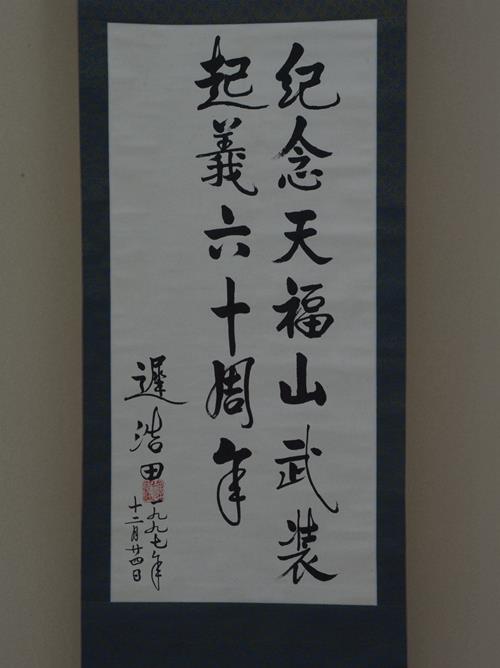 纪念天福山武装
起義六十周年
遲浩田
一九九七年
十二月廿四日